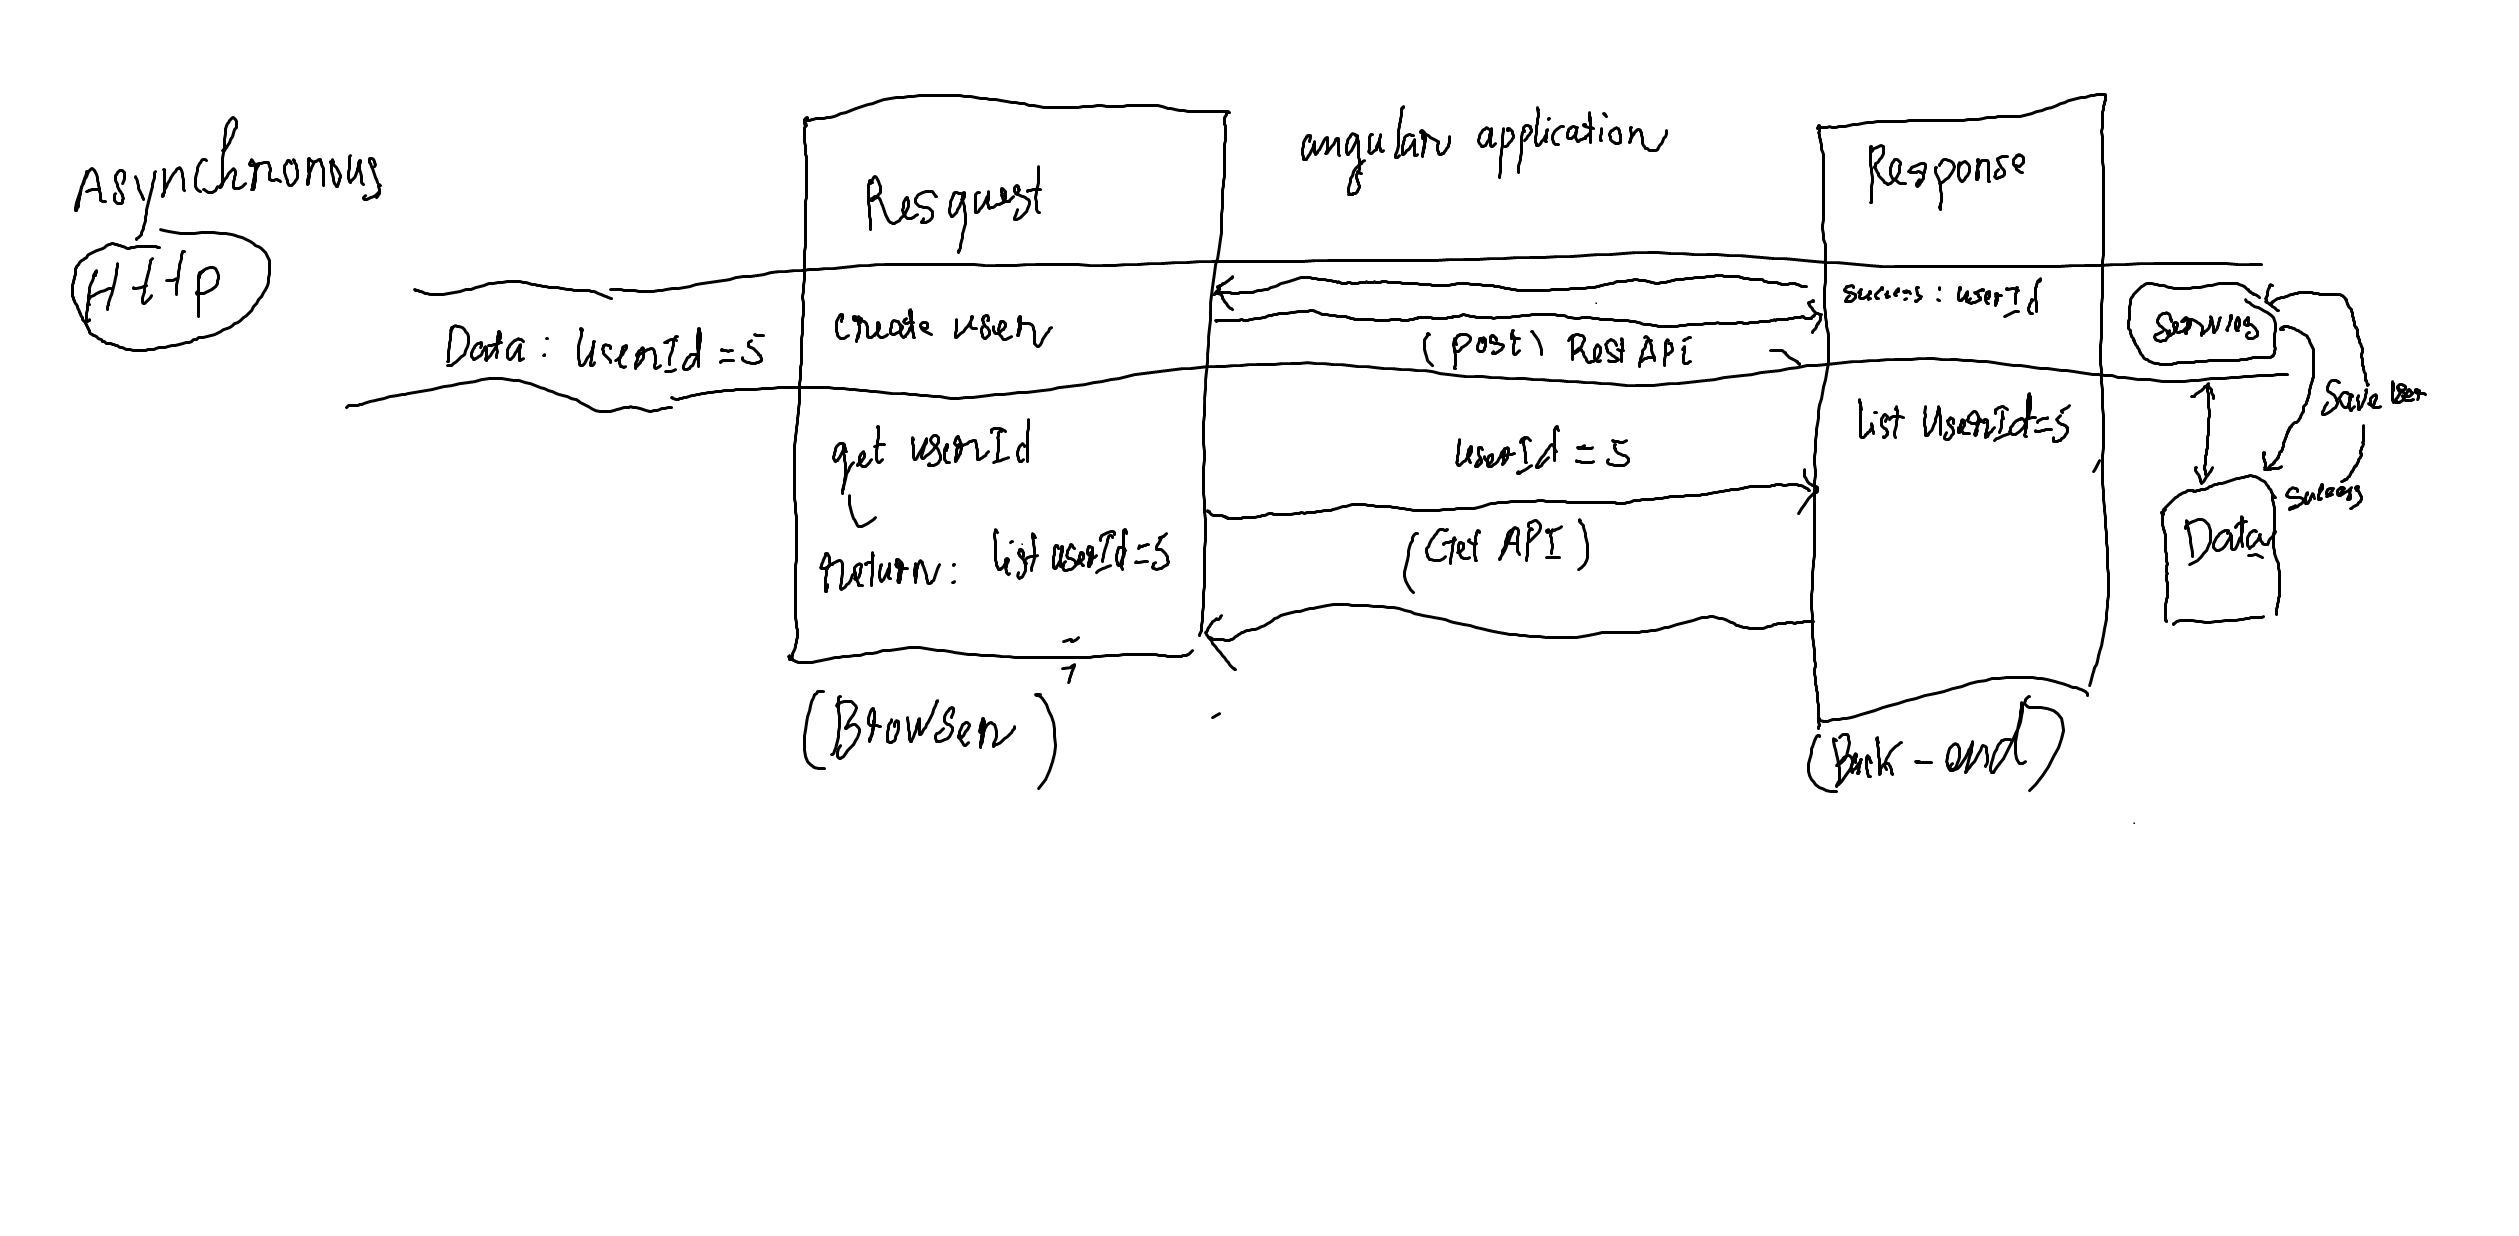 Asynchronous
Http
Request
angular aplication
Response
Data : UserId = 5
create user
(Post) RestApi
success : userId
Service
Save User
get userId
userId = 5
list userId = 5
success
return : list userId = 5
(Get API)
Data
(Browser)
(back - end)